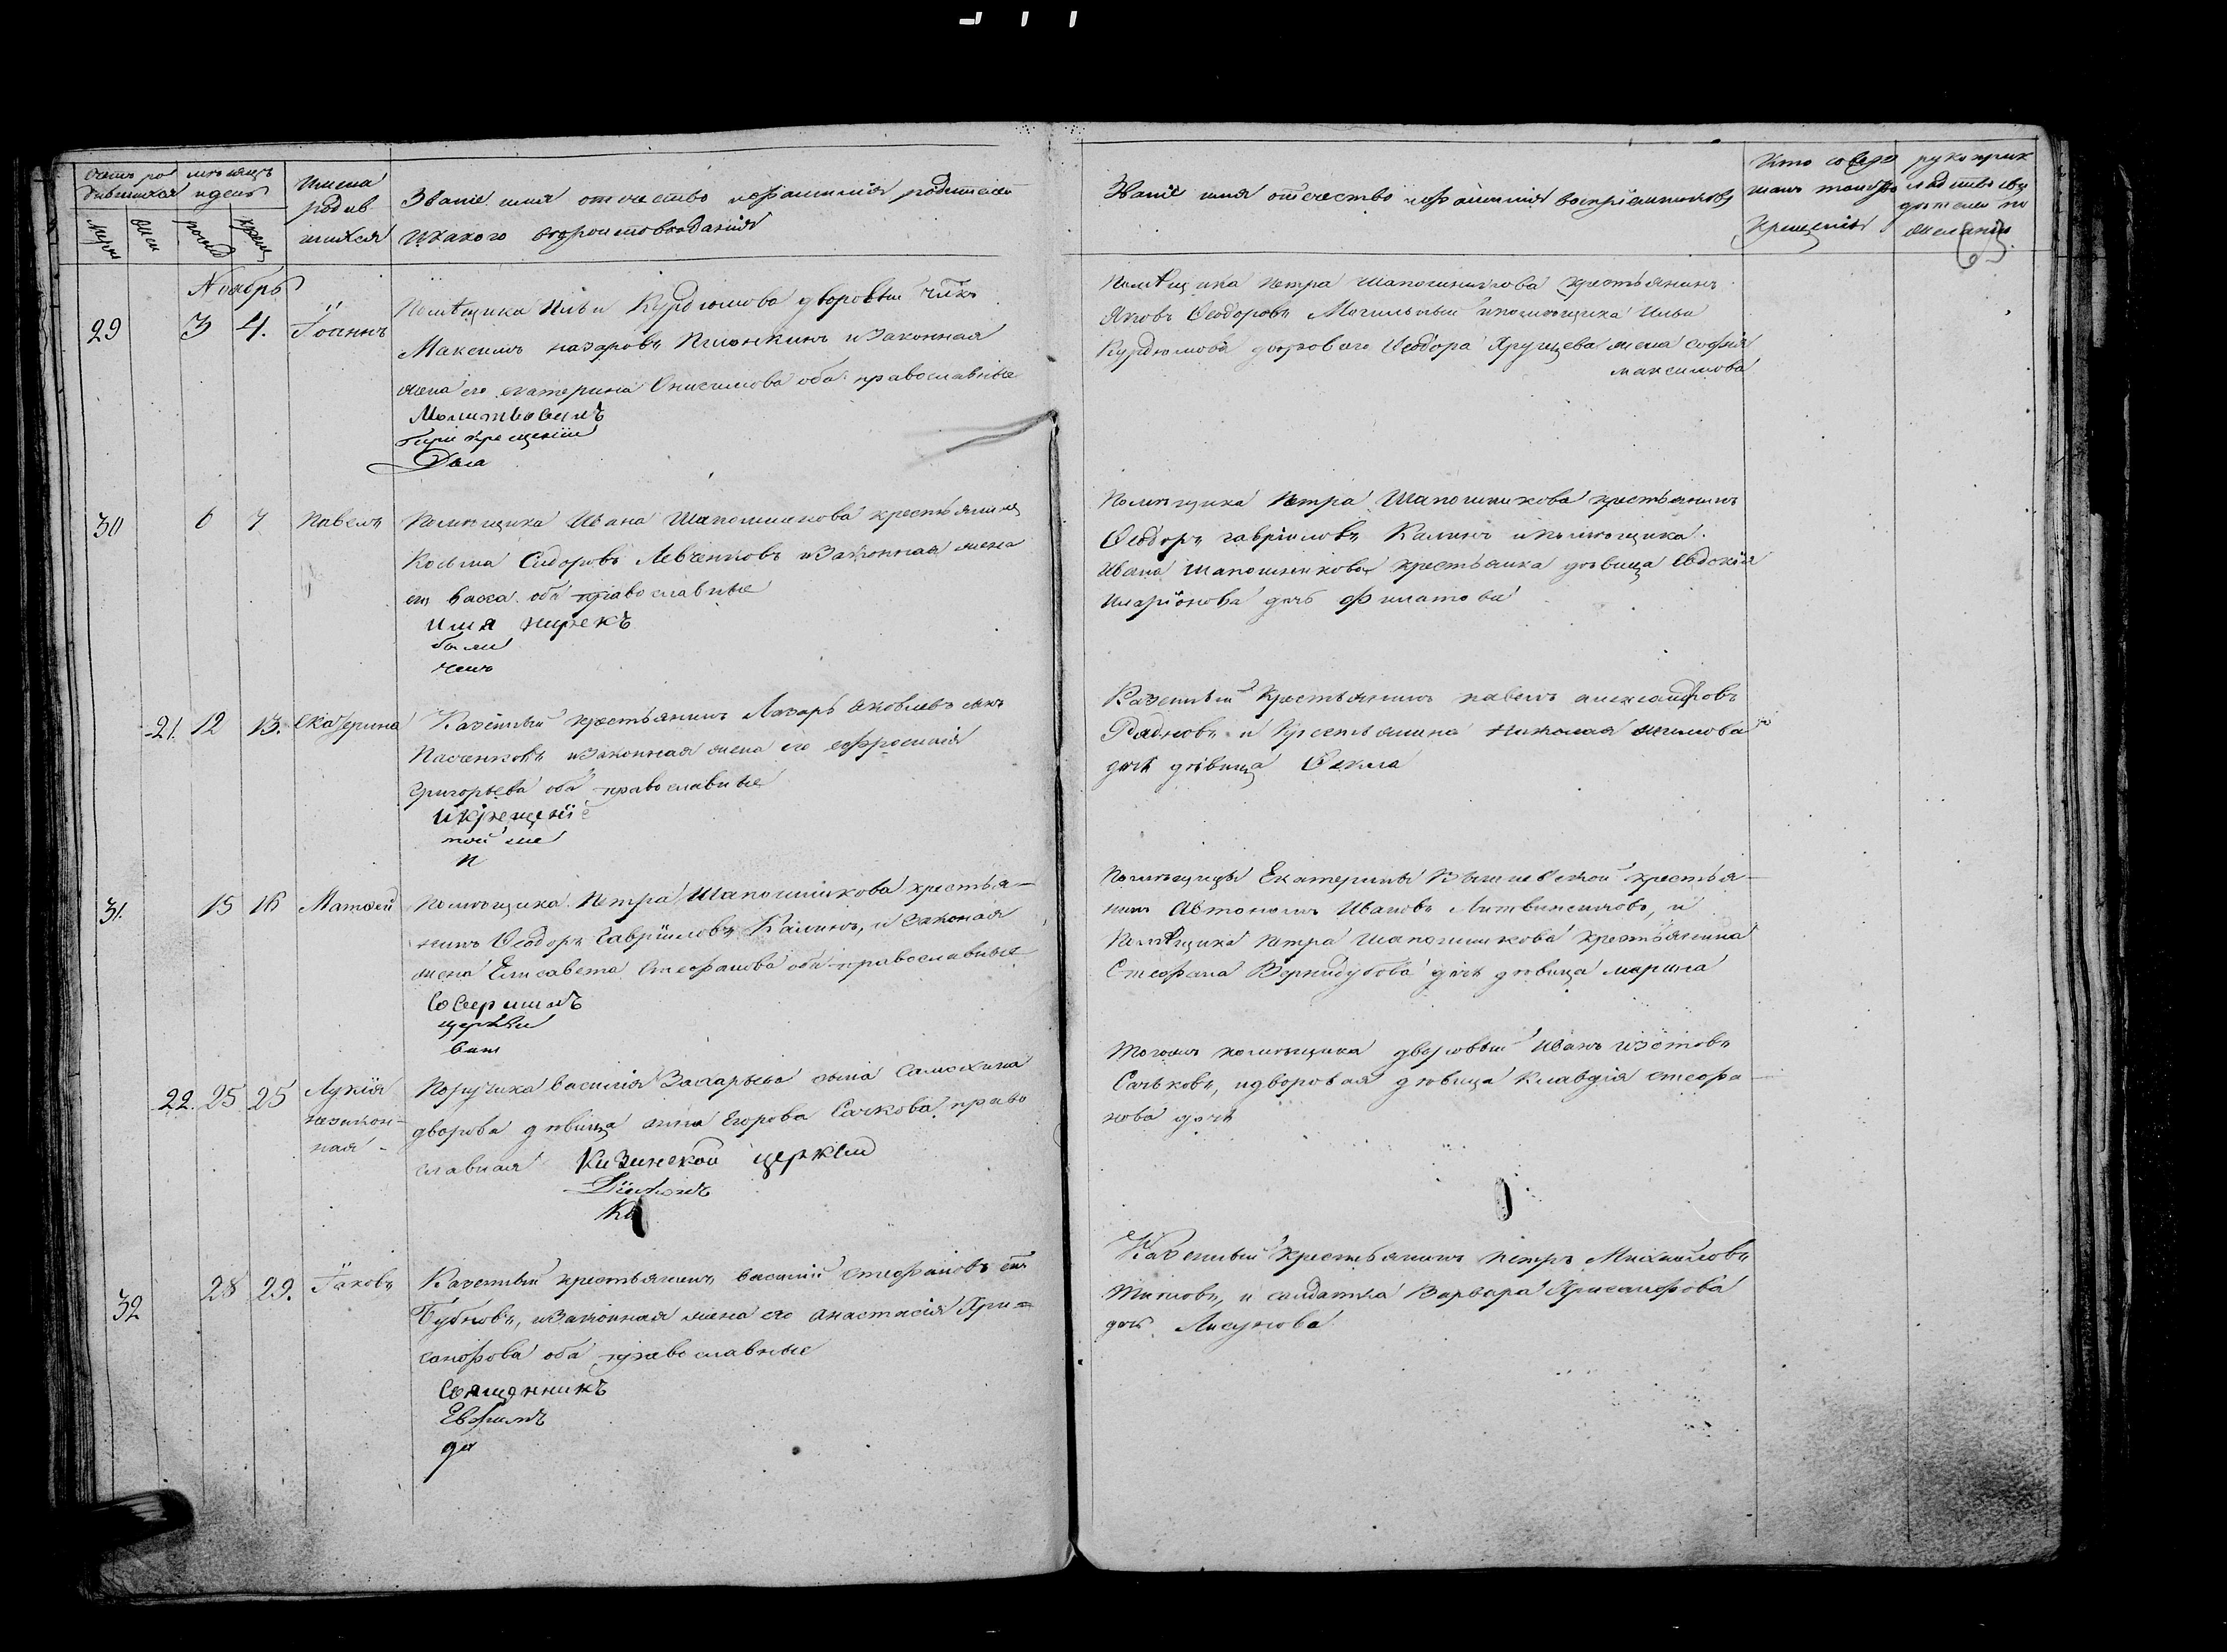 Счетъ ро
дившихся
мѣсяцъ
и день
Имена
родив
шихся
Званіе имя отечество и фамилія родителей
и какого вѣроисповѣданія
Муж
Жен
рожд
крещ
Званіе имя отечество и фамилія воспріемниковъ
Кто совер
шалъ таинство
крещенія
рукоприк
ладство сви
дѣтелей по
желанію
63
Ноябрь
29 3 4. Іоаннъ
Помѣщика Ильи Курдюмова дворовый чл҃къ
Максимъ Назаровъ и законная
жена его екатерина Онисимова оба православные
Молитвовалъ
при крещеніи
Помѣщика Петра Шапошникова крестьянинъ
Яковъ Ѳеодоровъ Могильный и помѣщика Ильи
Курдюмова дворового Ѳеодора жена Софія
максимова
30 6 7 Павелъ
Помѣщика Ивана Шапошникова крестьянинъ
Косьма Сидоровъ Левченковъ и законная жена
его Васса оба православные
имя нарекъ
были
Помѣщика Петра Шапошникова крестьянинъ
Ѳеодоръ гавріиловъ Калинъ и помѣщика
Ивана Шапошникова крестьянка дѣвица Евдокія
Иларіонова дочь филатова
21. 12 13. екатерина
Казенный крестьянинъ Лазарь Яковлевъ сынъ
Пасченковъ и законная жена его ефросинія
Григорьева оба православные
и крещеніе
той же
Казенный крестьянинъ павелъ александровъ
и крестьянина николая
дочь дѣвица Ѳекла
31. 15 16 Матѳей
Помѣщика Петра Шапошникова крестья-
нинъ Ѳеодоръ Гавріиловъ Калинъ, и законая
жена Елисавета Стефанова оба православные
Совершилъ
церкви
Помѣщицы Екатерины крестья-
нинъ Автономъ Ивановъ Литвиненковъ, и
Помѣщика Петра Шапошникова крестьянина
Стефана Вернидубова дочь дѣвица марина
22. 25 25 Лукія
незакон-
ная
Поручика василія Захарьева сына Самохина
дворова дѣвица анна Егорова Сачкова право
славная Кизинской церкви
Діаконъ
Тогожъ помѣщика дворовый Иванъ Изотовъ
Сачьковъ, и дворовая дѣвица Клавдія стефа
нова дочь
32 28 29. Іаковъ
Казенный крестьянинъ василій стефановъ сынъ
Бубновъ, и законная жена его анастасія Хри=
санфова оба православные
Священникъ
Евфимъ
Казенный крестьянинъ петръ Михайловъ
Титовъ, и салдатка Варвара Хрисанфова
дочь Лисунова